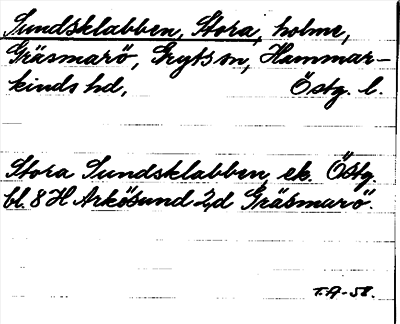 Sundsklabben, Stora, holme,
Gräsmarö, Gryts sn, Hammar-
kinds hd, Östg. l.
Stora Sundsklabben, ek. Östg.
bl. 8 H Arkösund 2d Gräsmarö.
T.A-58.